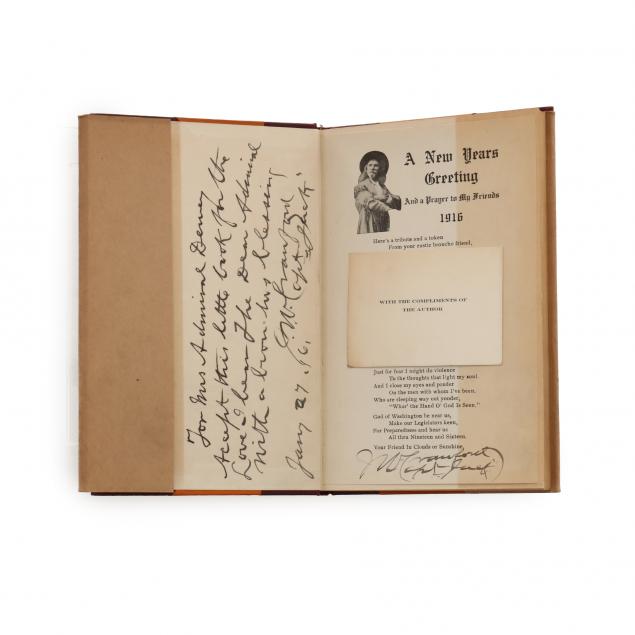 For Mrs Admiral Dewey
Accept this little book for the
Love I bear The Dear Admiral
With a blessing
J.W. Crawford
"Capt Jack"
Jany 27-16.
A New Years
Greeting
And a Prayer to My Friends
1916
Here's a tribute and a token
From your rustic broncho friend,
WITH THE COMPLIMENTS OF
THE AUTHOR
Just for fear I might do violence
To the thoughts that light my soul.
And I close my eyes and ponder
On the men with whom I've been.
Who are sleeping way out yonder,
"Whar' the Hand O' God Is Seen."
God of Washington be near us,
Make our Legislators keen,
For Preparedness and hear us
All thru Nineteen and Sixteen.
Your Friend In Clouds or Sunshine,
J W Crawford
(Capt Jack)